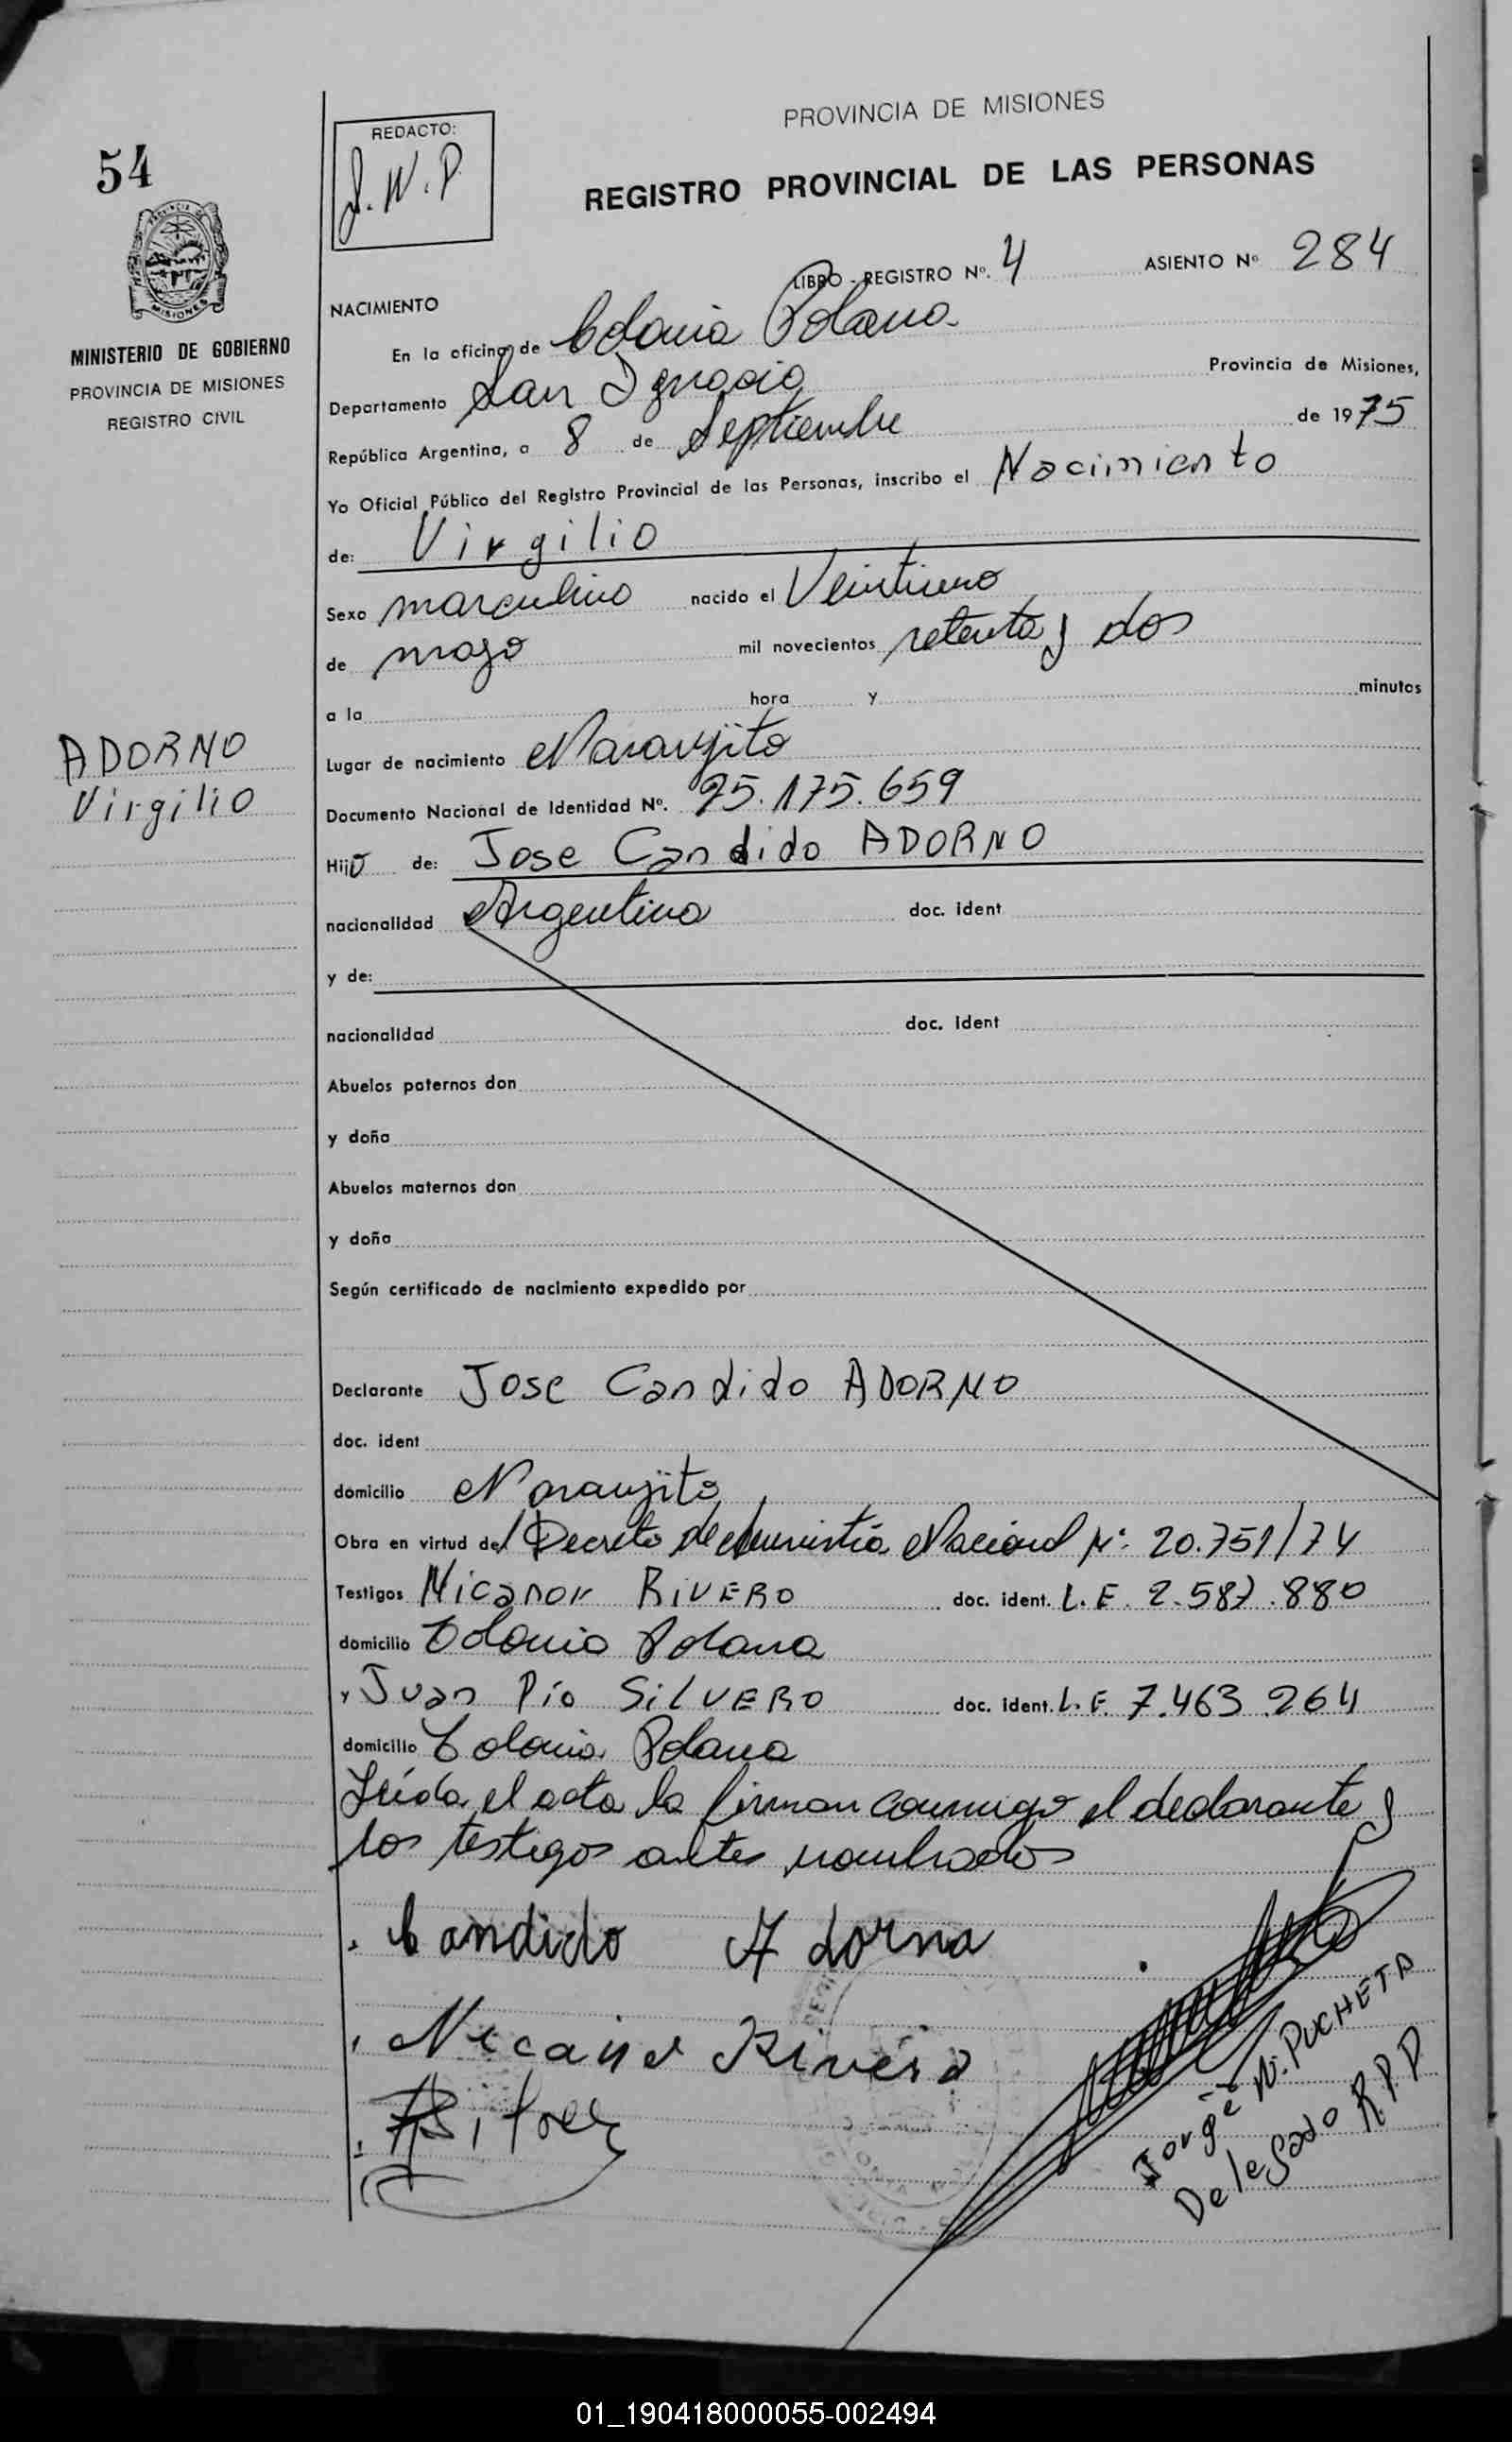 PROVINCIA DE MISIONES
REDACTO:
J.N.P
54
REGISTRO PROVINCIAL DE LAS PERSONAS
LIBRO - REGISTRO Nº. 4 ASIENTO Nº 284
NACIMIENTO
MINISTERIO DE GOBIERNO
PROVINCIA DE MISIONES
REGISTRO CIVIL
En la oficina de Colonia Polana
Departamento San Ignacio Provincia de Misiones,
República Argentina, a 8 de Septiembre de 1975
Yo Oficial Público del Registro Provincial de las Personas, inscribo el Nacimiento
de: Virgilio
Sexo masculino nacido el Veintiuno
de mayo mil novecientos setenta y dos
a la hora y minutos
ADORNO
Virgilio
Lugar de nacimiento Naranjito
Documento Nacional de Identidad Nº. 25.175.659
Hijo de: Jose Candido ADORNO
nacionalidad Argentina doc. ident
y de:
nacionalidad doc. ident
Abuelos paternos don
y doña
Abuelos maternos don
y doña
Según certificado de nacimiento expedido por
Declarante Jose Candido ADORNO
doc. ident
domicilio Naranjito
Obra en virtud del Decreto de Amnistia Nacional Nº 20.751/74
Testigos Nicanor RIVERO doc. ident. L.E. 2.587.880
domicilio Colonia Polana
y Juan Pío SILVERO doc. ident. L.E. 7.463.264
domicilio Colonia Polana
Leída el acta la firman conmigo el declarante y
los testigos antes nombrados
Candido Adorno
Nicanor Rivero
Jorge N. PUCHETA
Delegado R.P.P
01_190418000055-002494